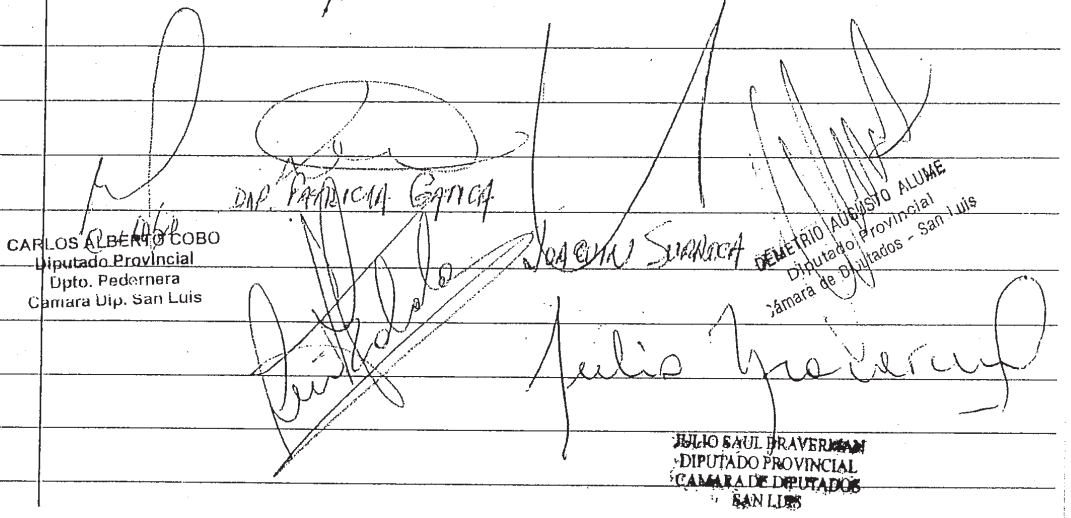 DIP. PATRICIA GATICA
CARLOS ALBERTO COBO
Diputado Provincial
Dpto. Pedernera
Camara Dip. San Luis
JOAQUIN
DEMETRIO AUGUSTO ALUME
Diputado Provincial
Cámara de Diputados - San Luis
Julio Braverman
JULIO SAUL BRAVERMAN
DIPUTADO PROVINCIAL
CAMARA DE DIPUTADOS
SAN LUIS